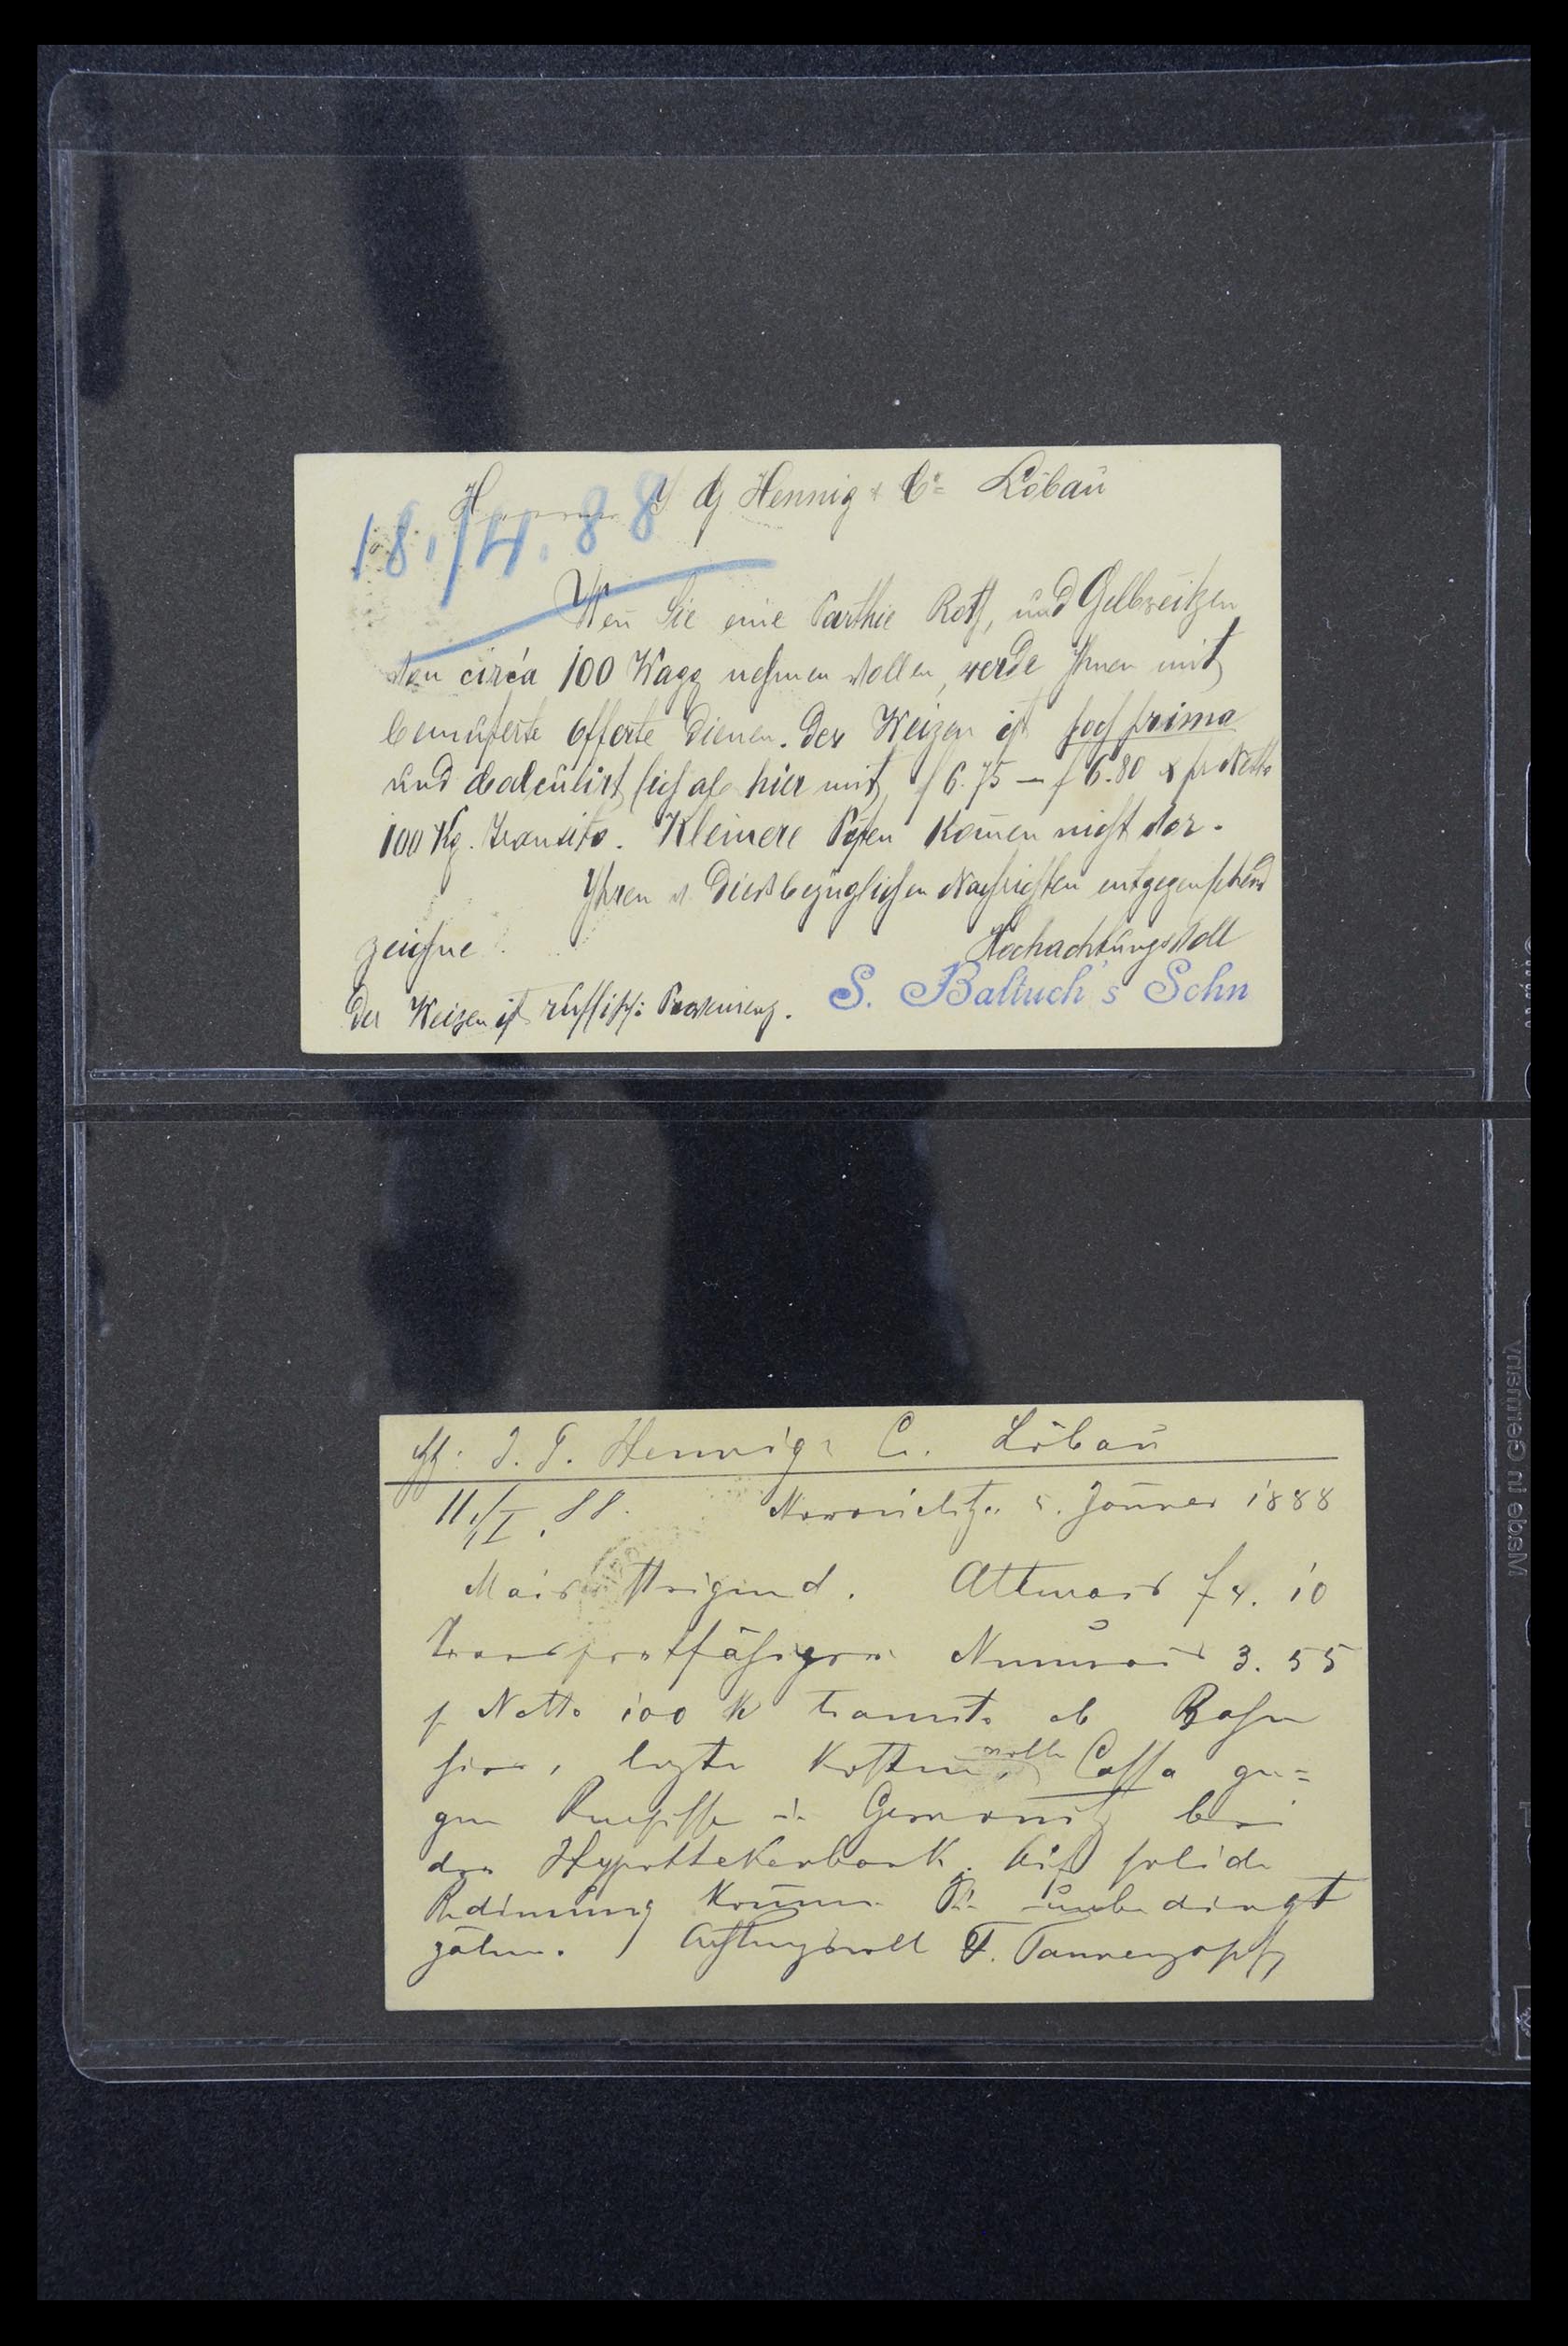 J G Hennig & Co Löbau
18./4.88
Wen̄ Sie eine Parthie Roth, und Gelbweitzen
von circa 100 Wagg nehmen wollen, werde Ihnen mit
bemusterte Offerte dienen. Der Weizen ist hoch prima
und calculirt sich ab hier mit f 6.75 – f 6.80 x pr Netto
100 Kg. Transito. Kleinere Posten kom̄en nicht vor.
Ihren diesbezüglichen Nachrichten entgegensehend
zeichne
Hochachtungsvoll
S. Baltuch's Sohn
Der Weizen ist russische Provenienz.
J. G. Hennig & Co. Löbau
11./I. 88. Nowosielitza 5. Jänner 1888
Mais steigend. Altmais f 4. 10
transportfähigen Neumais 3. 55
p Netto 100 K transito ab Bahn
hier, Cassa ge=
gen in Czernowitz bei
der Hypothekenbank. Auf solide
Bedienung können Sie unbedingt
zälen. Achtungsvoll F. Tannenzapf
Made in Germany